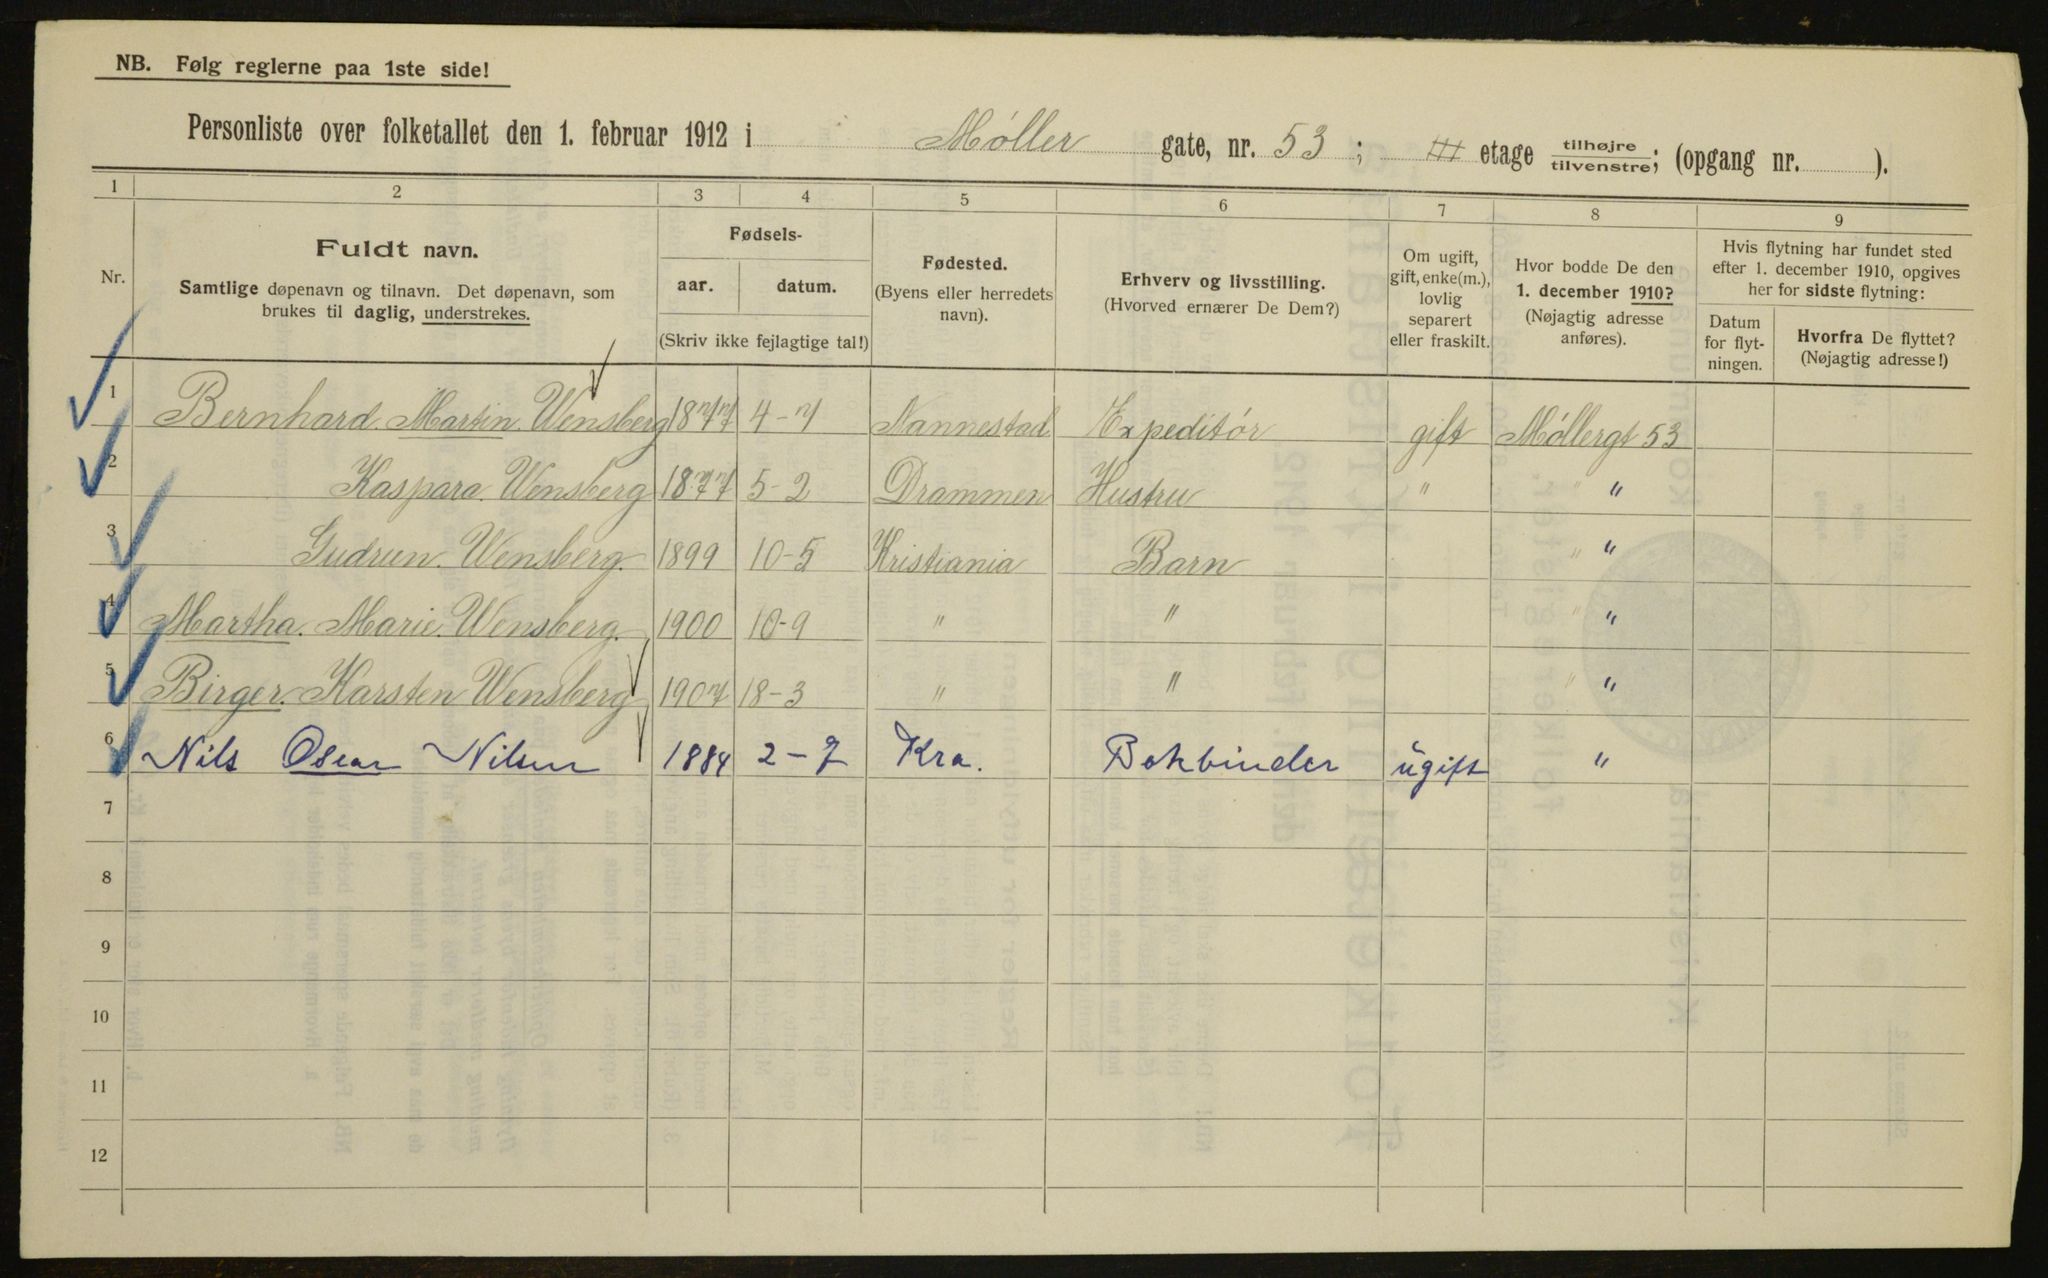 NB. Følg reglerne paa 1ste side!
Personliste over folketallet den 1. februar 1912 i Møller gate, nr. 53; III etage tilhøjre tilvenstre; (opgang nr. ).
1 2 3 4 5 6 7 8 9
Nr.
Fuldt navn.
Samtlige døpenavn og tilnavn. Det døpenavn, som
brukes til daglig, understrekes.
Fødsels-
aar. datum.
(Skriv ikke fejlagtige tal!)
Fødested.
(Byens eller herredets
navn).
Erhverv og livsstilling.
(Hvorved ernærer De Dem?)
Om ugift,
gift, enke(m.),
lovlig
separert
eller fraskilt.
Hvor bodde De den
1. december 1910?
(Nøjagtig adresse
anføres).
Hvis flytning har fundet sted
efter 1. december 1910, opgives
her for sidste flytning:
Datum
for flyt-
ningen.
Hvorfra De flyttet?
(Nøjagtig adresse!)
1 Bernhard Martin Wensberg 1877 4-7 Nannestad Expeditør gift Møllergt 53
2 Kaspara Wensberg 1877 5-2 Drammen Hustru " "
3 Gudrun Wensberg 1899 10-5 Kristiania Barn "
4 Martha Marie Wensberg 1900 10-9 " " "
5 Birger Karsten Wensberg 1907 18-3 " " "
6 Nils Oscar Nilsen 1884 2-7 Kra. Bokbinder ugift "
7
8
9
10
11
12